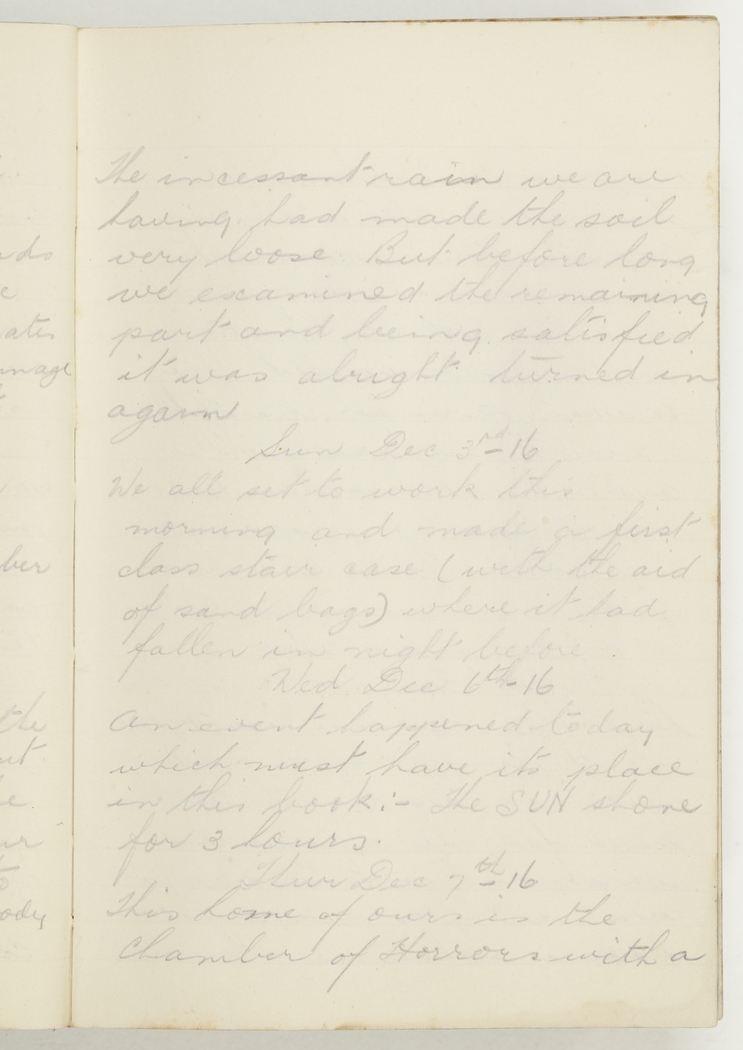 The incessant rain we are
having had made the soil
very loose. But before long
we examined the remaining
part and being satisfied
it was alright turned in
again
Sun Dec 3rd-16
We all set to work this
morning and made a first
class stair case (with the aid
of sand bags) where it had
fallen in night before.
Wed Dec 6th-16
An event happened today
which must have its place
in this book:- The SUN shone
for 3 hours.
Thur Dec 7th-16
This home of ours is the
Chamber of Horrors with a
ber
the
ody